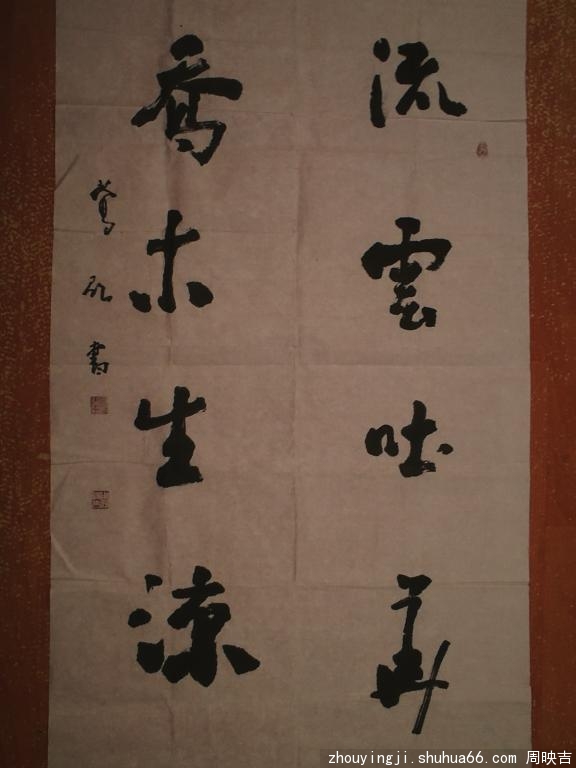 流雲吐華
喬木生涼
書
zhouyingji.shuhua66.com 周映吉